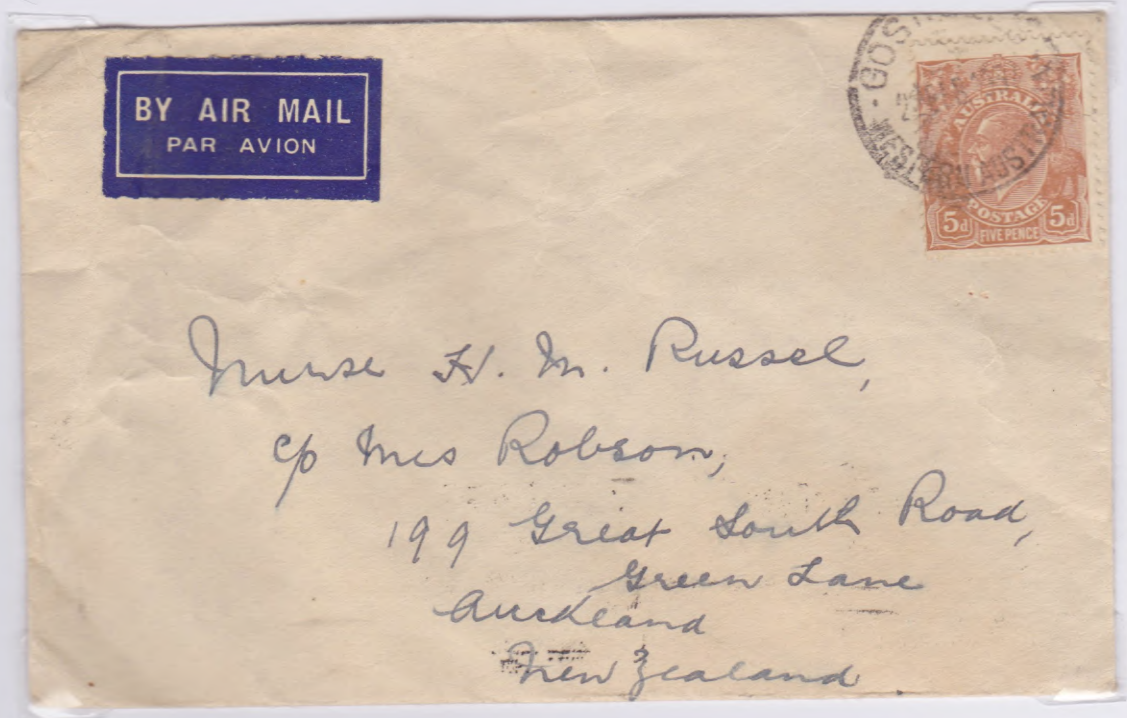 BY AIR MAIL
PAR AVION
WESTERN AUSTRALIA
AUSTRALIA
POSTAGE
5d FIVE PENCE 5d
Nurse H. M. Russel,
c/o Mrs Robson,
199 Great South Road,
Green Lane
Auckland
New Zealand